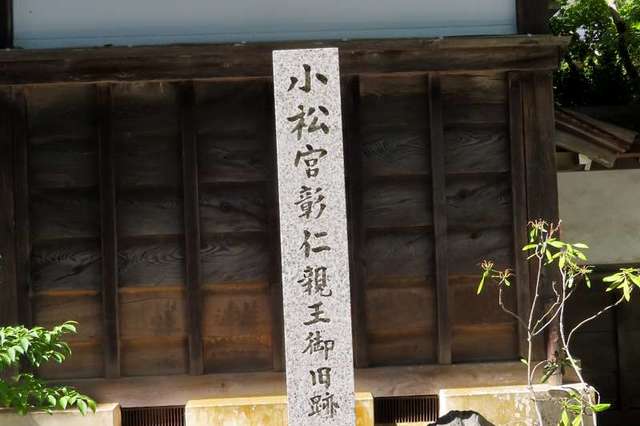 小松宮彰仁親王御旧跡